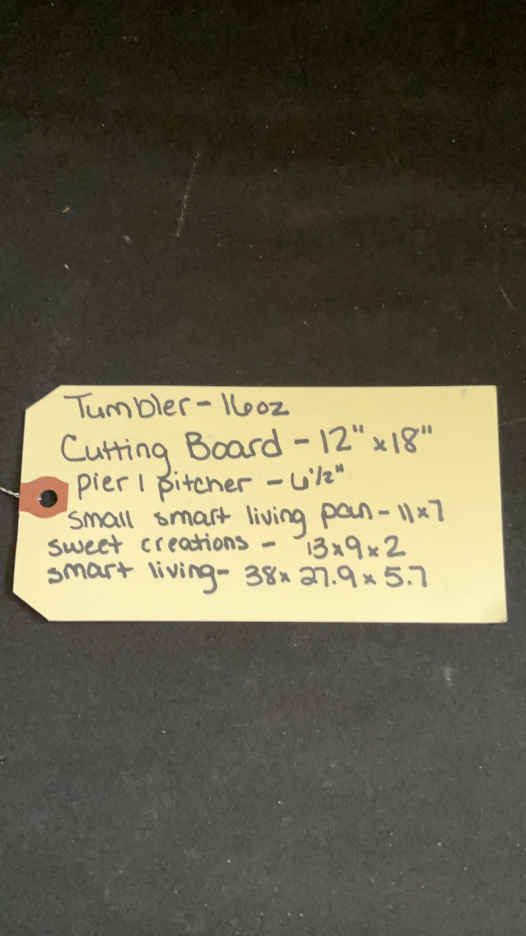 Tumbler - 16oz
Cutting Board - 12" x 18"
Pier 1 pitcher -
small smart living pan - 11x7
sweet creations - 13x9x2
smart living - 38x 27.9 x 5.7